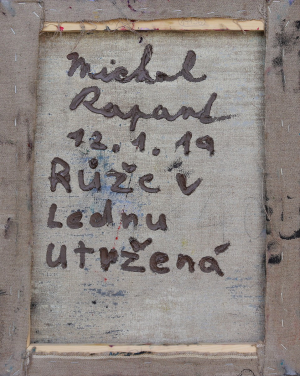 Michal
Rapant
12.1.19
Růže v
Lednu
utržená